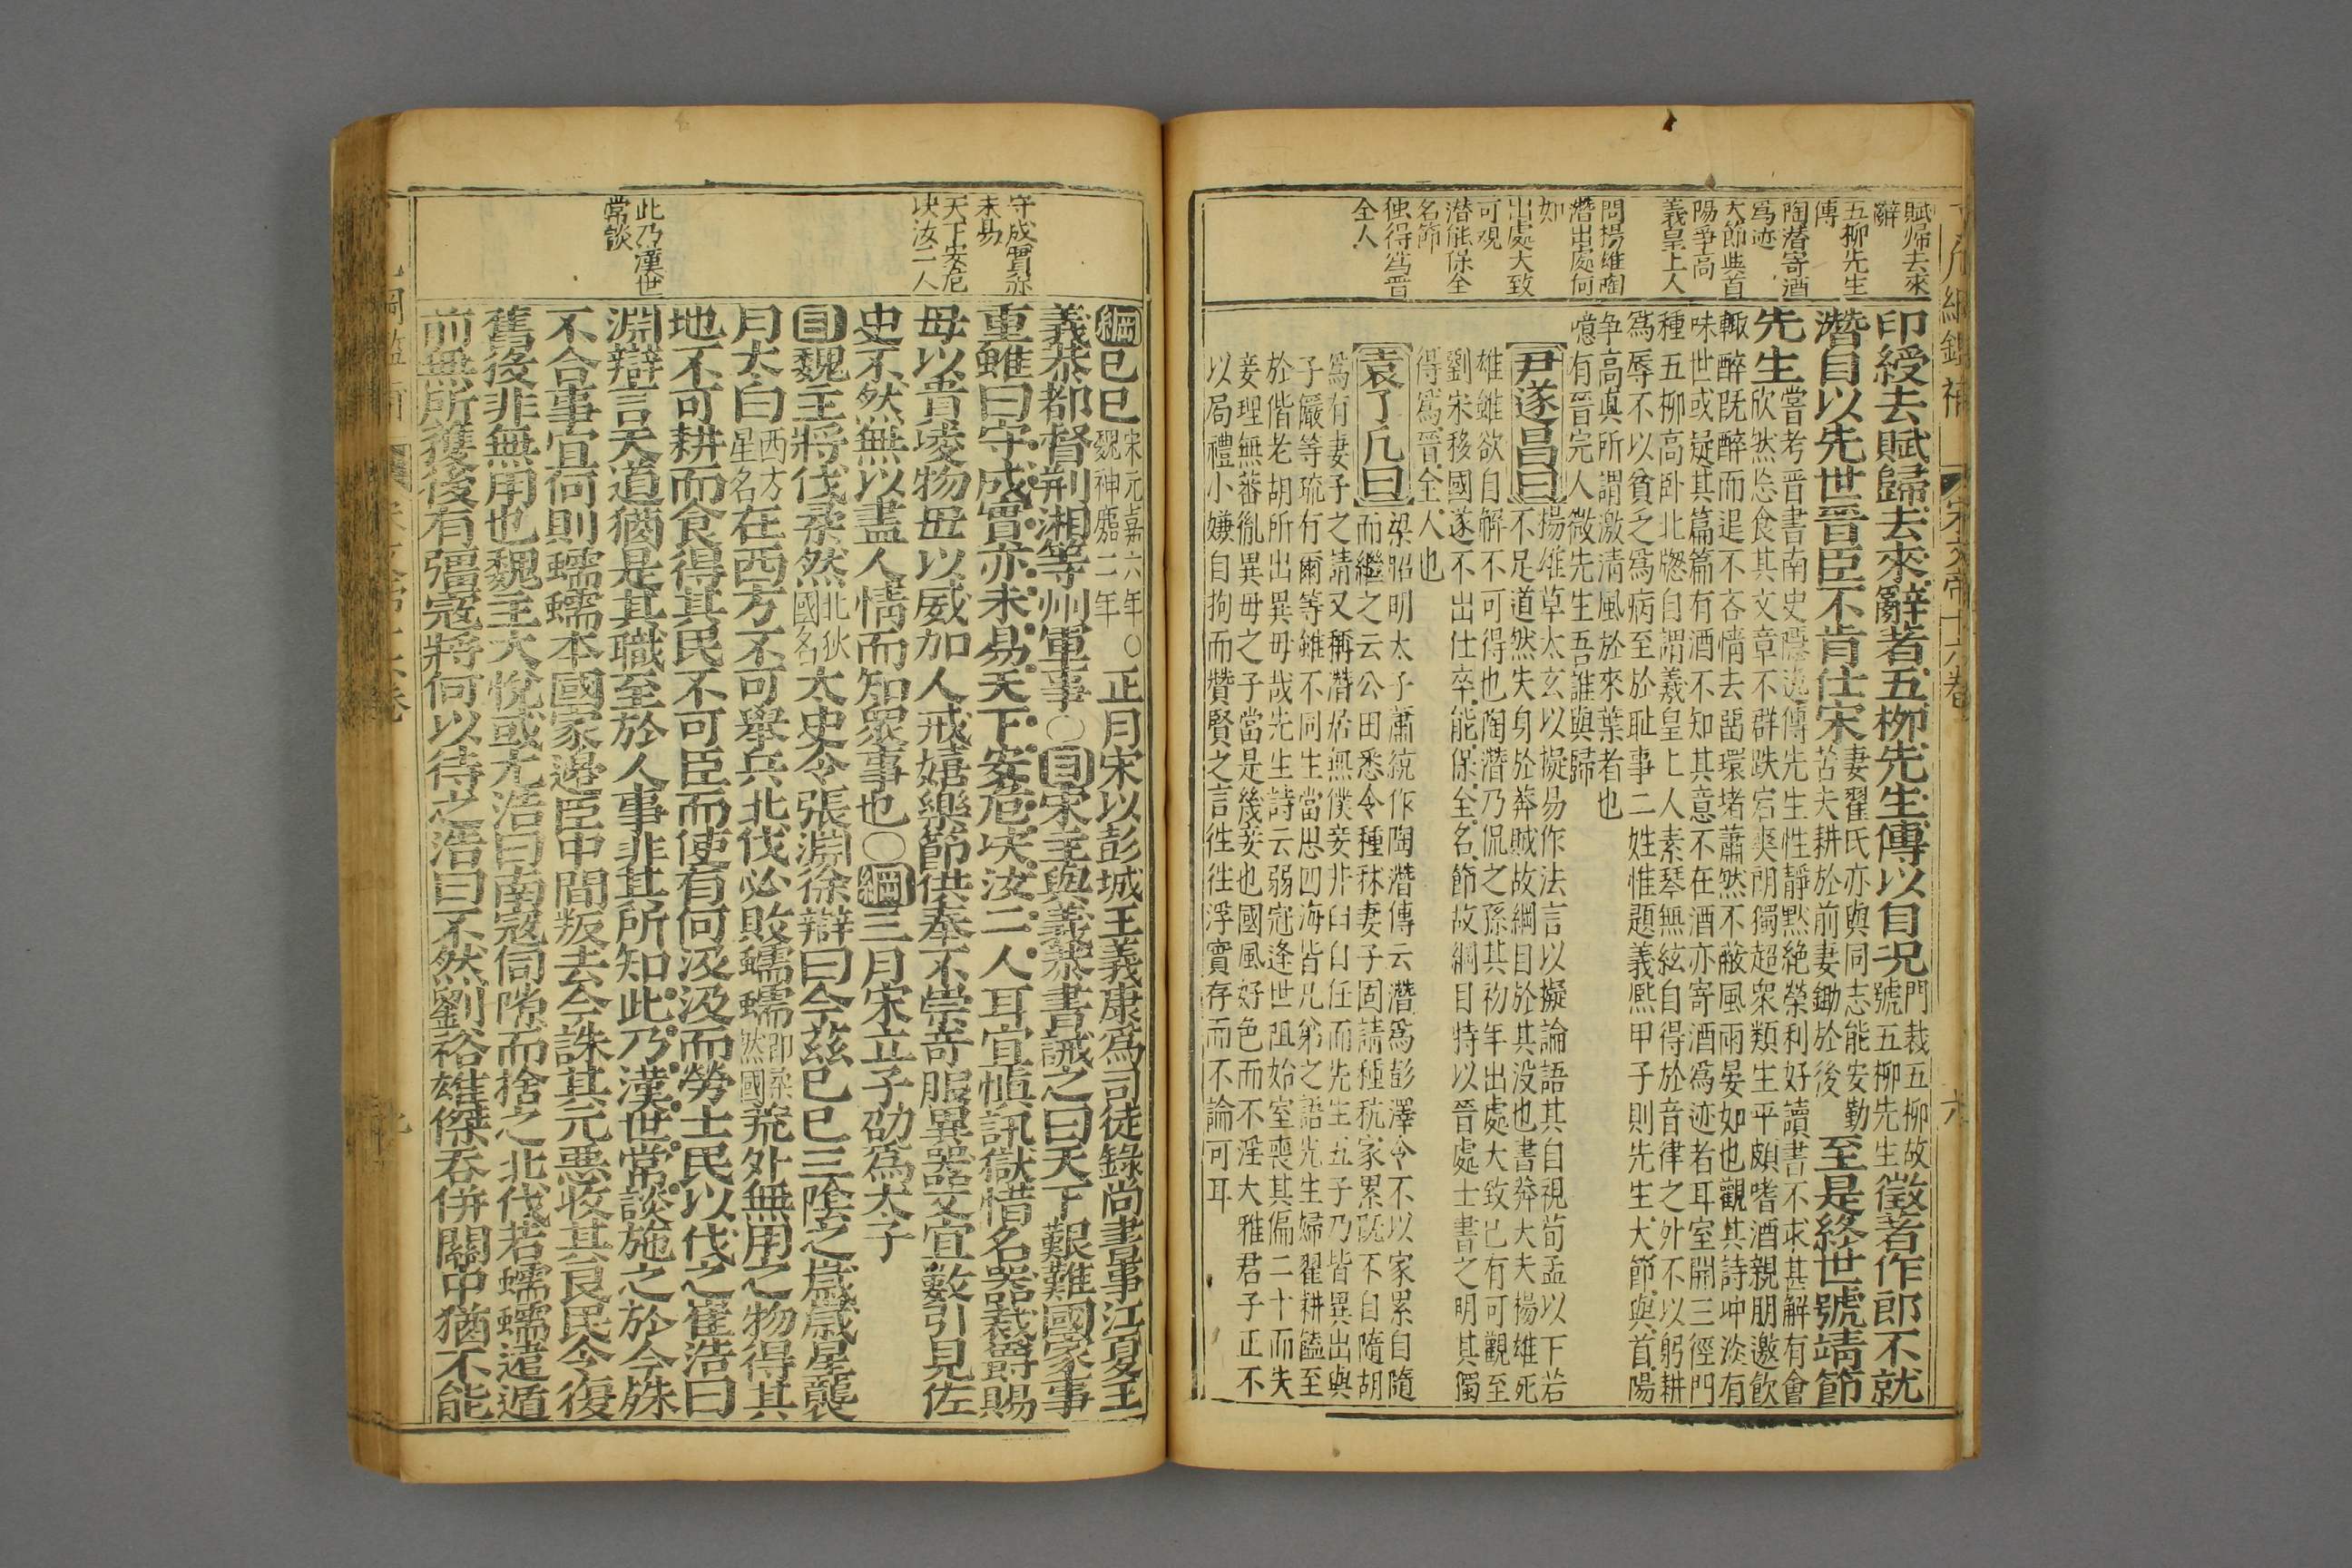 了凡綱鑑補
宋文帝十六卷
六
賦歸去來
辭
五柳先生
傳
陶潛寄酒
爲迹
大節與首
陽爭高
義皇上人
問揚雄陶
潛出處何
如
出處大致
可观
潜能保全
名節
独得爲晋
全人
印綬去賦歸去來辭著五柳先生傳以自况門栽五柳故號五柳先生徵著作郎不就
潛自以先世晉臣不肯仕宋妻翟氏亦與同志能安勤苦夫耕於前妻鋤於後至是終世號靖節
先生嘗考晉書南史隱逸傳先生性靜默絶榮利好讀書不求甚解有會
欣然忘食其文章不群跌宕爽朗獨超衆類生平頗嗜酒親朋邀飲
輙醉既醉而退不吝情去畱環堵蕭然不蔽風雨晏如也觀其詩冲淡有
味世或疑其篇篇有酒不知其意不在酒亦寄酒爲迹者耳室開三徑門
種五柳高卧北牕自謂義皇上人素琴無絃自得於音律之外不以躬耕
爲辱不以貧乏爲病至於耻事二姓惟題義熙甲子則先生大節與首陽
争高眞所謂激清風於來葉者也
噫有晉完人微先生吾誰與歸
尹遂昌曰揚雄草太玄以擬易作法言以擬論語其自視荀孟以下若
不足道然失身於莽賊故綱目於其没也書莽大夫揚雄死
雄雖欲自解不可得也陶潛乃侃之孫其初年出處大致已有可觀至
劉宋移國遂不出仕卒能保全名節故綱目特以晉處士書之明其獨
得爲晉全人也
袁了凡曰梁昭明太子蕭統作陶潛傳云潛爲彭澤令不以家累自隨
而繼之云公田悉令種秫妻子固請種秔家累既不自隨胡
爲有妻子之請又稱潛居無僕妾井臼自任而先生五子乃皆異出與
子儼等疏有爾等雖不同生當思四海皆兄弟之語先生婦翟耕饁至
於偕老胡所出異毋哉先生詩云弱冠逢世阻始室喪其偏二十而失
妾理無蕃胤異毋之子當是幾妾也國風好色而不淫大雅君子正不
以局禮小嫌自拘而贊賢之言徃徃浮實存而不論可耳
守成實亦
未易
天下安危
决汝二人
此乃漢世
常談
綱己巳宋元嘉六年魏神䴥二年○正月宋以彭城王義康爲司徒錄尚書事江夏王
義恭都督荆湘等州軍事○目宋主與義恭書誡之曰天下艱難國家事
重雖曰守成實亦未易天下安危决汝二人耳宜慎訊獄惜名器裁爵賜
毋以貴凌物毋以威加人戒嬉樂節供奉不崇奇服異器又宜數引見佐
史不然無以盡人情而知衆事也○綱三月宋立子劭爲太子
目魏主將伐柔然北狄國名太史令張淵徐辯曰今茲己巳三陰之歲歲星襲
月太白西方星名在西方不可舉兵北伐必敗蠕蠕即柔然國荒外無用之物得其
地不可耕而食得其民不可臣而使有何汲汲而勞士民以伐之崔浩曰
淵辯言天道猶是其職至於人事非其所知此乃漢世常談施之於今殊
不合事宜何則蠕蠕本國家邊臣中間叛去今誅其元惡收其良民令復
舊役非無用也魏主大悅或尤浩曰南寇伺隙而捨之北伐若蠕蠕遠遁
前無所獲後有彊寇將何以待之浩曰不然劉裕雄傑吞併關中猶不能